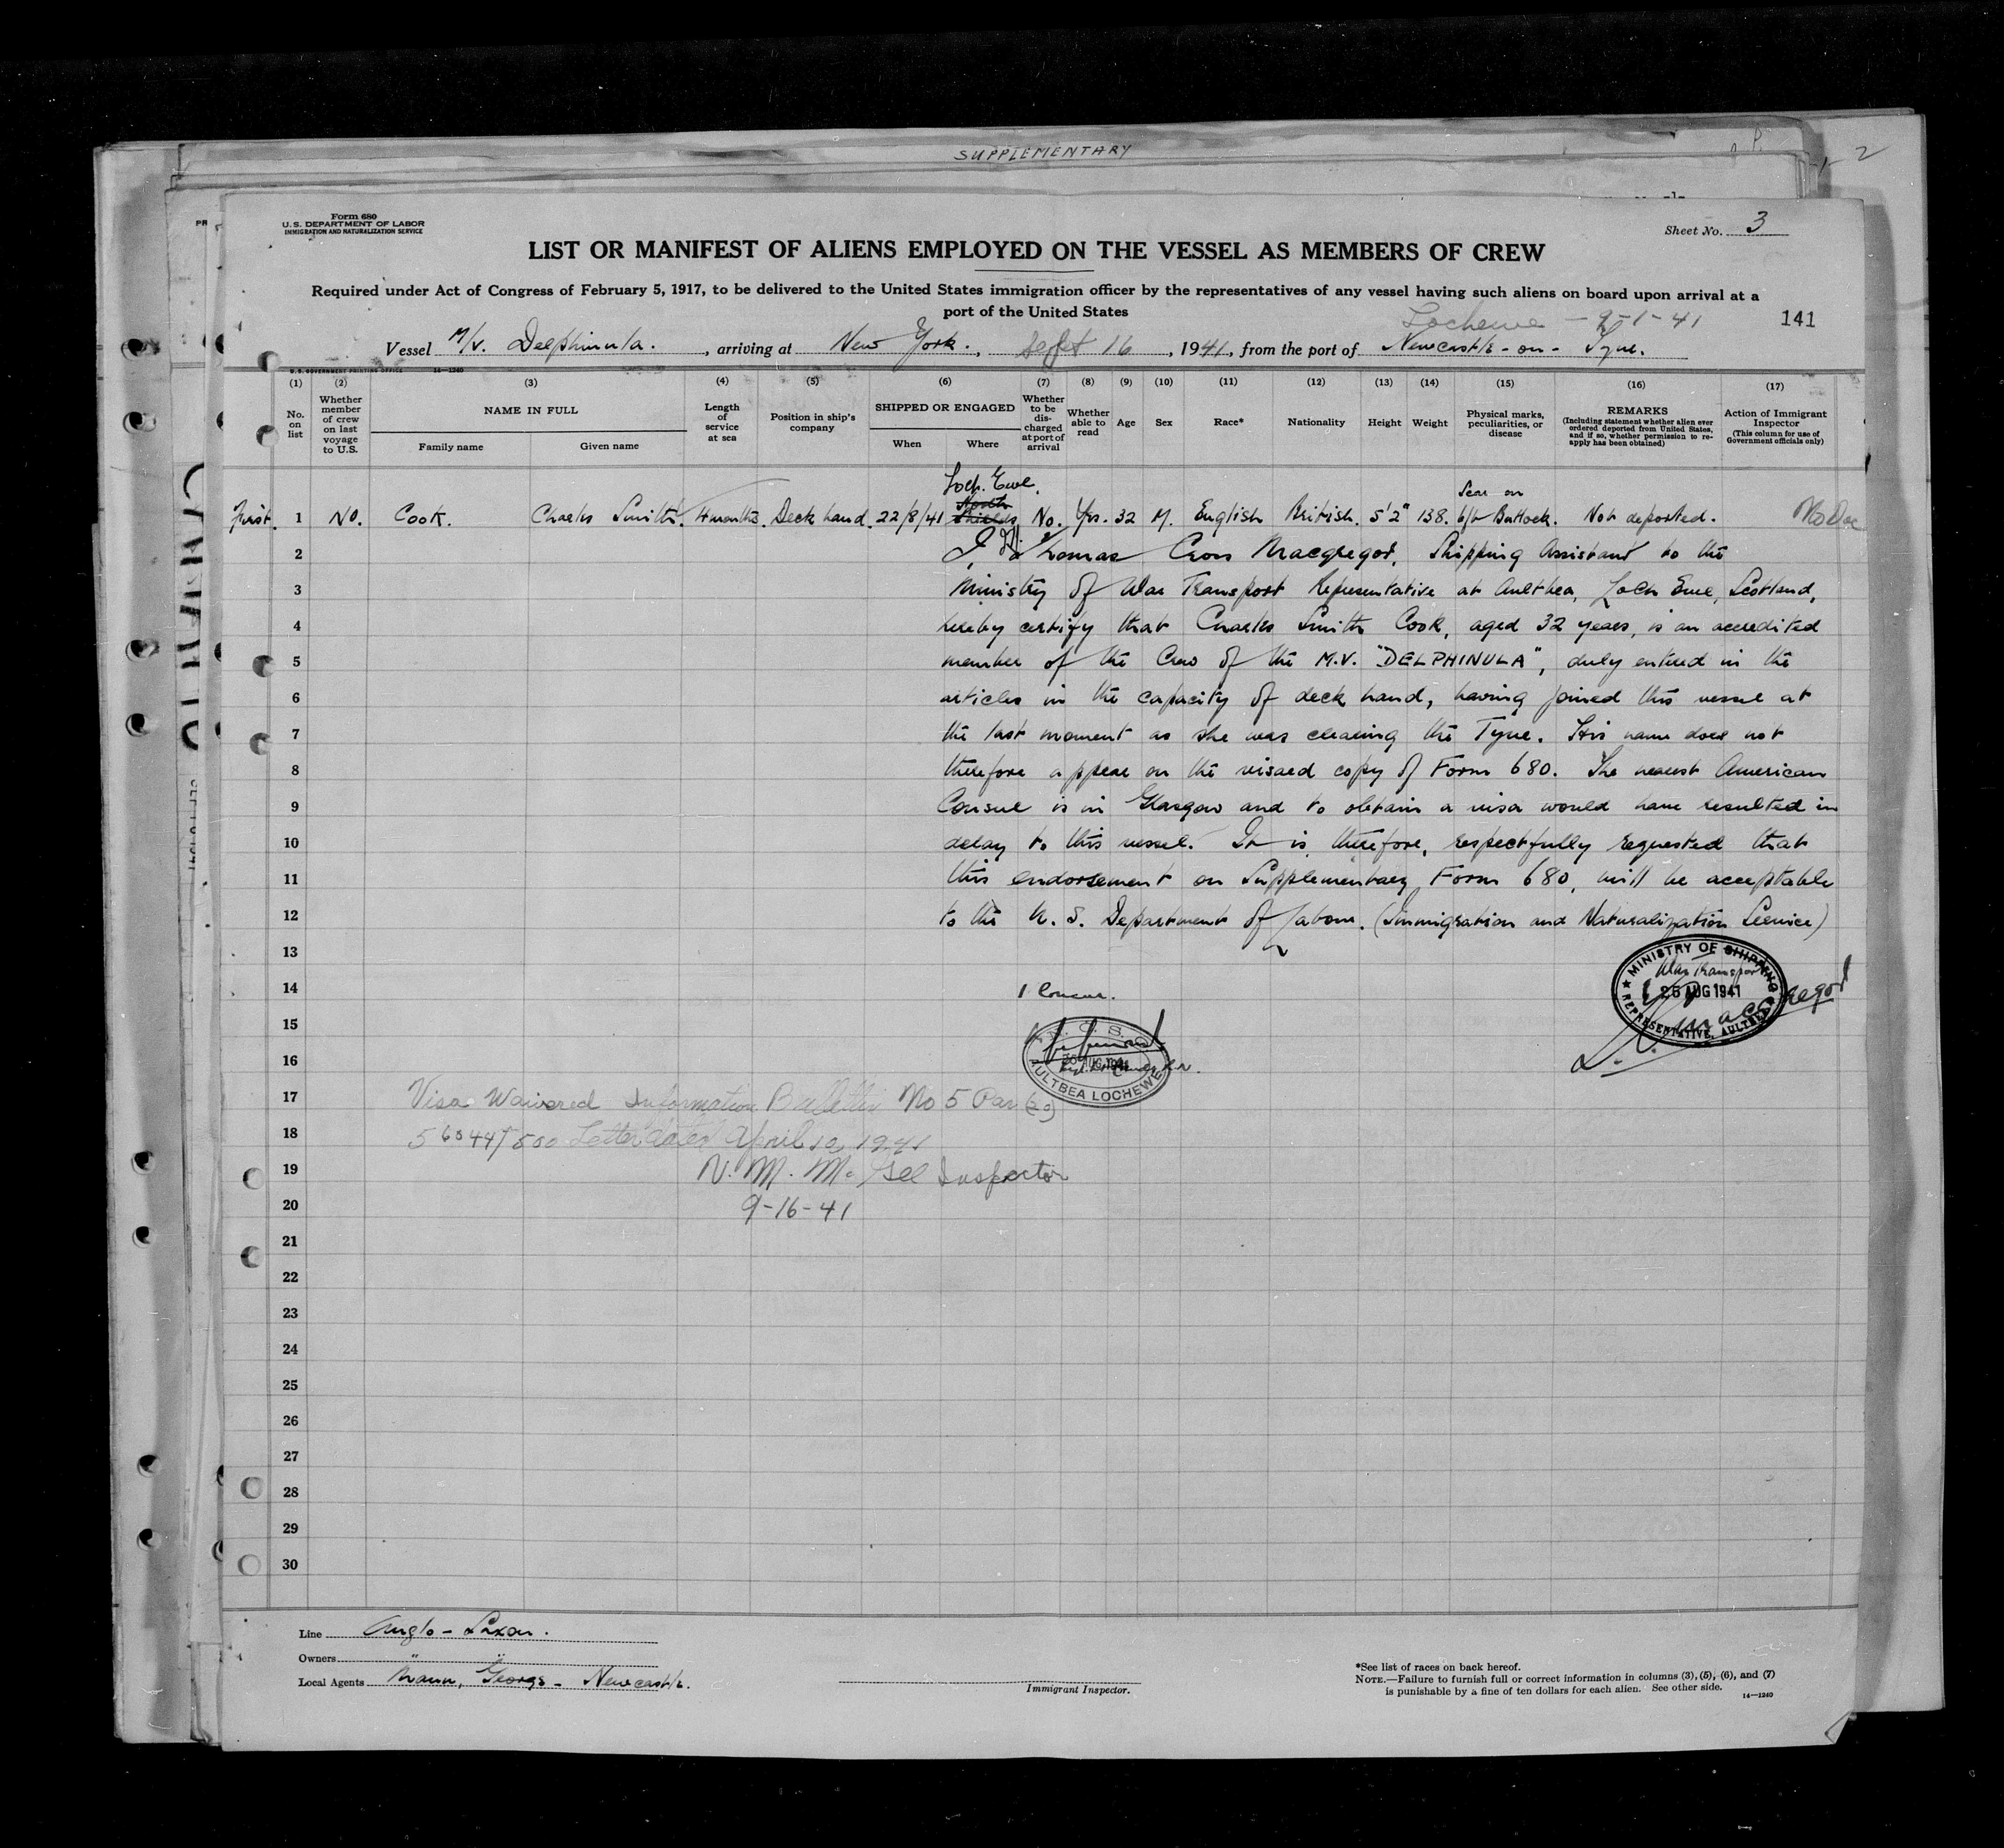 SUPPLEMENTARY
2
Form 680
U. S. DEPARTMENT OF LABOR
IMMIGRATION AND NATURALIZATION SERVICE
Sheet No. 3
LIST OR MANIFEST OF ALIENS EMPLOYED ON THE VESSEL AS MEMBERS OF CREW
Required under Act of Congress of February 5, 1917, to be delivered to the United States immigration officer by the representatives of any vessel having such aliens on board upon arrival at a
port of the United States
Lochewe - 9-1-41 141
Vessel M/V. Delphinula. , arriving at New York. , Sept 16 , 1941, from the port of Newcastle-on-Tyne.
U. S. GOVERNMENT PRINTING OFFICE 14-1240
(1) (2) (3) (4) (5) (6) (7) (8) (9) (10) (11) (12) (13) (14) (15) (16) (17)
No. on list
Whether member of crew on last voyage to U.S.
NAME IN FULL
Family name Given name
Length of service at sea
Position in ship's company
SHIPPED OR ENGAGED
When Where
Whether to be discharged at port of arrival
Whether able to read
Age
Sex
Race*
Nationality
Height
Weight
Physical marks, peculiarities, or disease
REMARKS
(Including statement whether alien ever ordered deported from United States, and if so, whether permission to reapply has been obtained)
Action of Immigrant Inspector
(This column for use of Government officials only)
Loch. Ewe.
first 1 No. Cook. Charles Smith. 4 months. Deck hand. 22/8/41 North Shields No. Yes. 32 M. English British. 5'2" 138. Scar on b/h Buttock. Not deported. No Doc
2 I, Thomas Cross Macgregor, Shipping Assistant to the
3 Ministry of War Transport Representative at Aultbea, Loch Ewe, Scotland,
4 hereby certify that Charles Smith Cook, aged 32 years, is an accredited
5 member of the Crew of the M.V. "DELPHINULA", duly entered in the
6 articles in the capacity of deck hand, having joined this vessel at
7 the last moment as she was clearing the Tyne. His name does not
8 therefore appear on the visaed copy of Form 680. The nearest American
9 Consul is in Glasgow and to obtain a visa would have resulted in
10 delay to this vessel. It is, therefore, respectfully requested that
11 this endorsement on Supplementary Form 680, will be acceptable
12 to the U. S. Department of Labour. (Immigration and Naturalization Service)
13
14 I concur.
MINISTRY OF SHIPPING
War Transport
25 AUG 1941
REPRESENTATIVE, AULTBEA
Macgregor
15
16
AUG 1941
AULTBEA LOCHEWE
R.N.
17 Visa Waivered Information Bulletin No 5 Par (20)
18 56044/500 Letter dated April 10, 1941
19 N. M. McGee Inspector
20 9-16-41
21
22
23
24
25
26
27
28
29
30
Line Anglo-Saxon.
Owners " "
Local Agents Mann, George - Newcastle.
Immigrant Inspector.
*See list of races on back hereof.
NOTE.—Failure to furnish full or correct information in columns (3), (5), (6), and (7)
is punishable by a fine of ten dollars for each alien. See other side. 14—1240